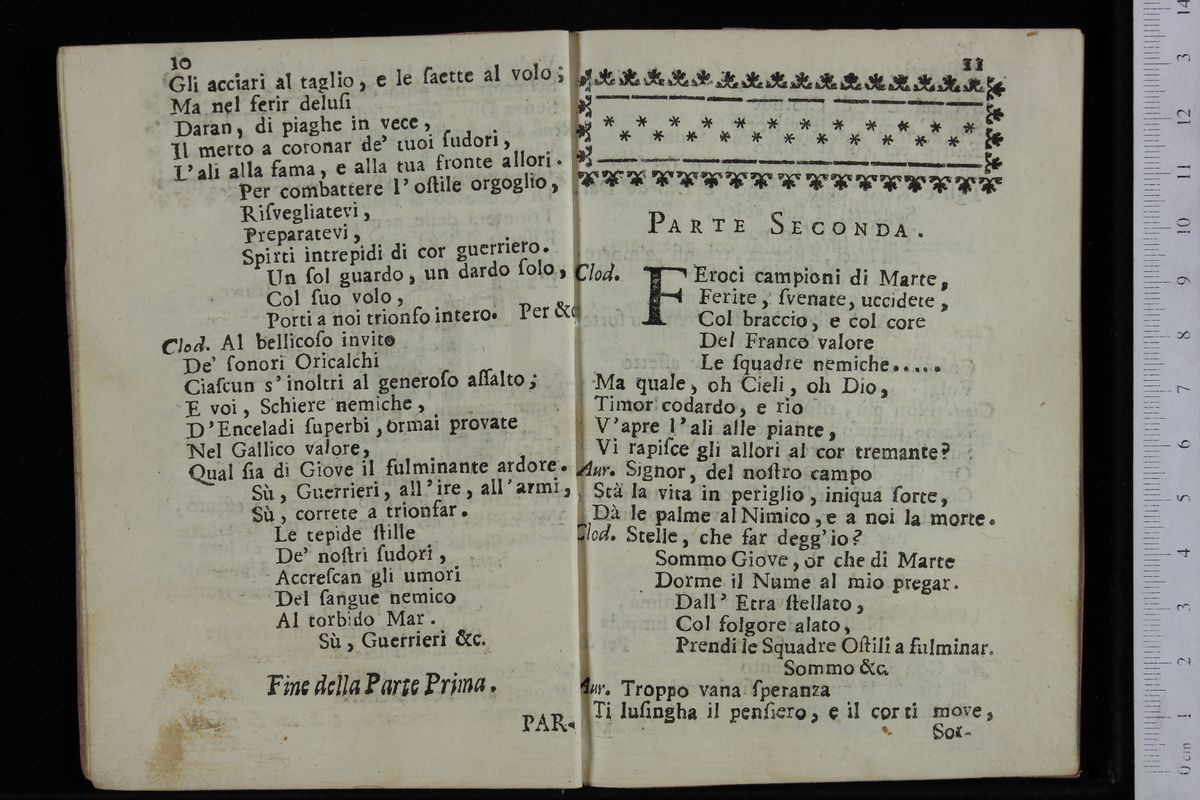 10
Gli acciari al taglio, e le ſaette al volo;
Ma nel ferir deluſi
Daran, di piaghe in vece,
Il merto a coronar de' tuoi ſudori,
L'ali alla fama, e alla tua fronte allori.
Per combattere l'oſtile orgoglio,
Riſvegliatevi,
Preparatevi,
Spirti intrepidi di cor guerriero.
Un ſol guardo, un dardo ſolo,
Col ſuo volo,
Porti a noi trionfo intero. Per &c
Clod. Al bellicoſo invito
De' ſonori Oricalchi
Ciaſcun s'inoltri al generoſo aſſalto;
E voi, Schiere nemiche,
D'Enceladi ſuperbi, ormai provate
Nel Gallico valore,
Qual ſia di Giove il fulminante ardore.
Sù, Guerrieri, all'ire, all'armi,
Sù, correte a trionfar.
Le tepide ſtille
De' noſtri ſudori,
Accreſcan gli umori
Del ſangue nemico
Al torbido Mar.
Sù, Guerrieri &c.
Fine della Parte Prima.
PAR-
11
PARTE SECONDA.
Clod. FEroci campioni di Marte,
Ferite, ſvenate, uccidete,
Col braccio, e col core
Del Franco valore
Le ſquadre nemiche.....
Ma quale, oh Cieli, oh Dio,
Timor codardo, e rio
V'apre l'ali alle piante,
Vi rapiſce gli allori al cor tremante?
Aur. Signor, del noſtro campo
Stà la vita in periglio, iniqua ſorte,
Dà le palme al Nimico, e a noi la morte.
Clod. Stelle, che far degg'io?
Sommo Giove, or che di Marte
Dorme il Nume al mio pregar.
Dall' Etra ſtellato,
Col folgore alato,
Prendi le Squadre Oſtili a fulminar.
Sommo &c.
Aur. Troppo vana ſperanza
Ti luſingha il penſiero, e il cor ti move,
Sor-
0 cm 1 2 3 4 5 6 7 8 9 10 11 12 13 14